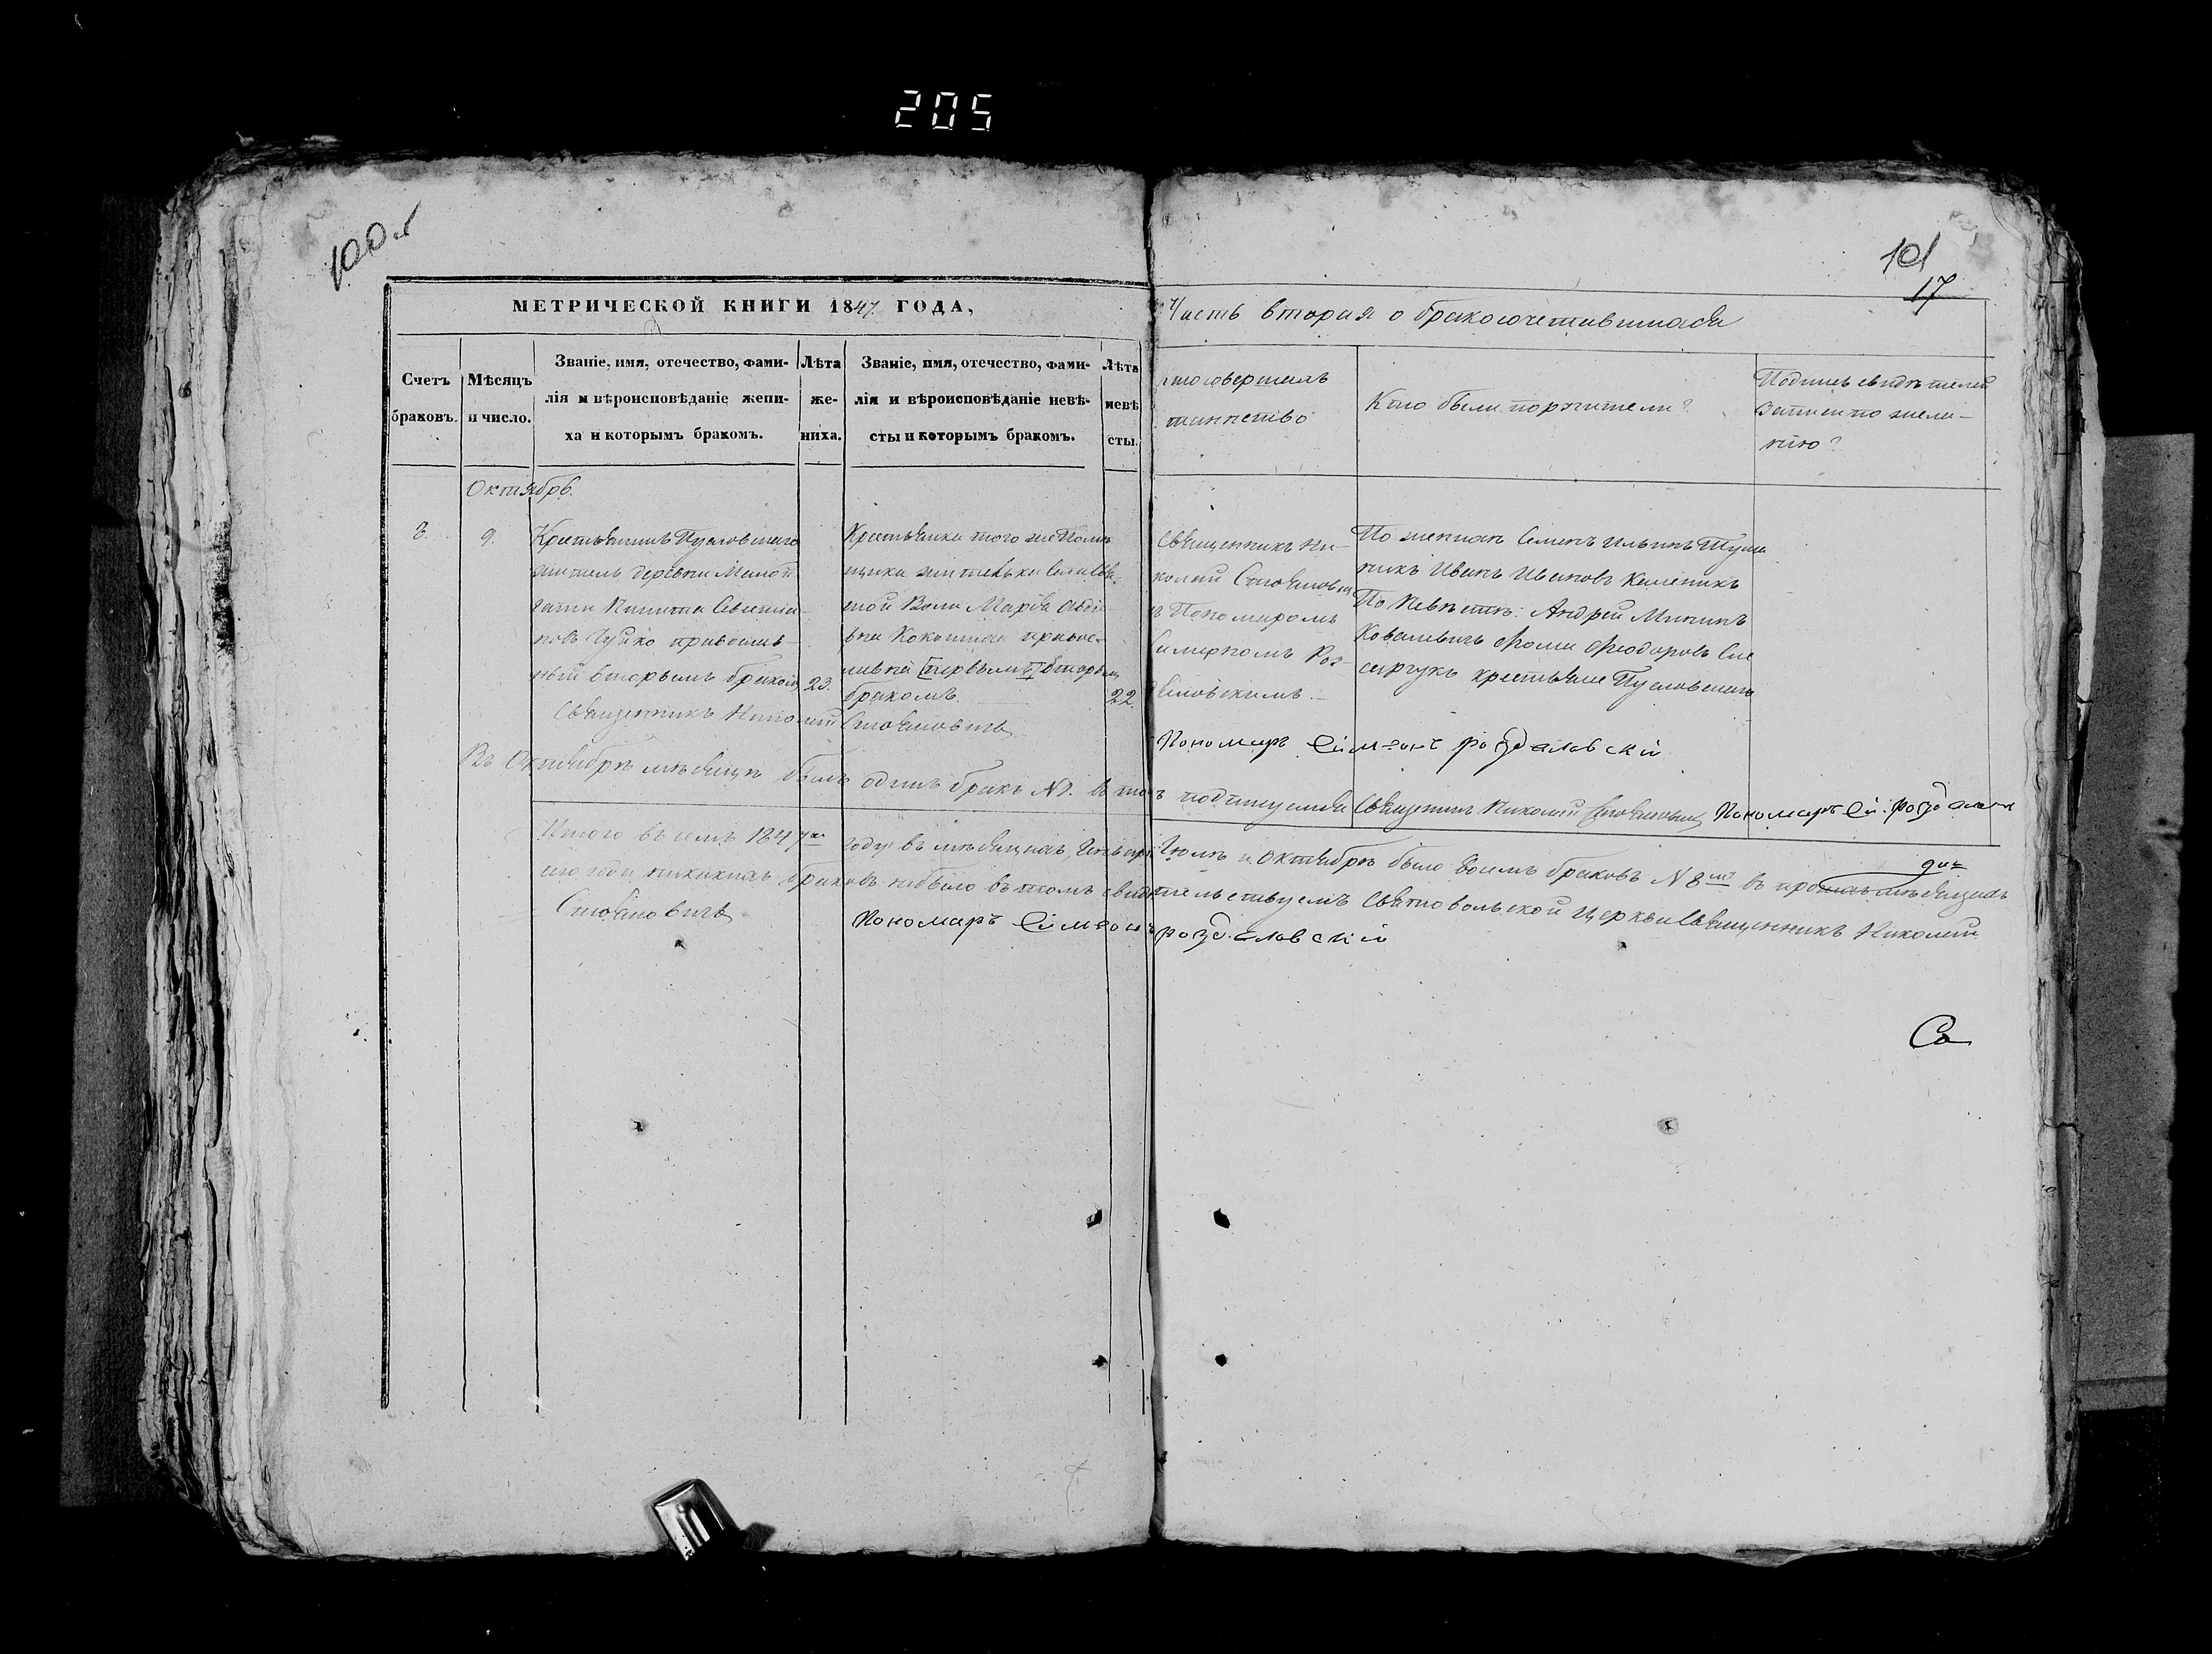 205
100
101
17
МЕТРИЧЕСКОЙ КНИГИ 1847 ГОДА,
Часть вторая о бракосочетавшихся
Счетъ браковъ.
Мѣсяцъ и число.
Званіе, имя, отечество, фами-
лія и вѣроисповѣданіе жени-
ха и которымъ бракомъ.
Лѣта
же-
ниха.
Званіе, имя, отечество, фами-
лія и вѣроисповѣданіе невѣ-
сты и которымъ бракомъ.
Лѣта
невѣ
сты.
то совершалъ
таинство
Кто были поручители?
Подпись свидѣтелей
записи по жела-
нію?
Октябрь.
8.
9.
Крестьянинъ Пусловскаго
житель деревни
Никита
Чуйко православ-
ный вторымъ бракомъ
23.
Крестьянка того же Помѣ
щика жителька села Свя
той Воли Марья Авдѣ
вна православ
первымъ вторымъ
бракомъ
22.
Священникъ Ни-
колай Стояновичъ
съ Пономаромъ
Роз-
яловскимъ.
По женихѣ Семенъ Ильинъ
Иванъ Ивановъ
По Невѣстѣ: Андрей Мининъ
Ковалевичъ Фома Феодоровъ
крестьяне Пусловскаго
Священникъ Николай Стояновичъ
Пономаръ Симеонъ роздяловскій
Въ Октябрѣ мѣсяцѣ былъ одинъ бракъ №1. въ томъ подписуемся Священникъ Николай Стояновичъ Пономаръ Си. роздялов
Итого въ семъ 1847мъ году въ мѣсяцахъ, Январѣ Іюлѣ и Октябрѣ было восемъ браковъ № 8мъ въ прочихъ мѣсяцахъ
сего года никакихъ браковъ небыло въ томъ свидѣтельствуемъ Святовольской Церкви Священникъ Николай
Стояновичъ
Пономаръ Симеонъ роздяловскій